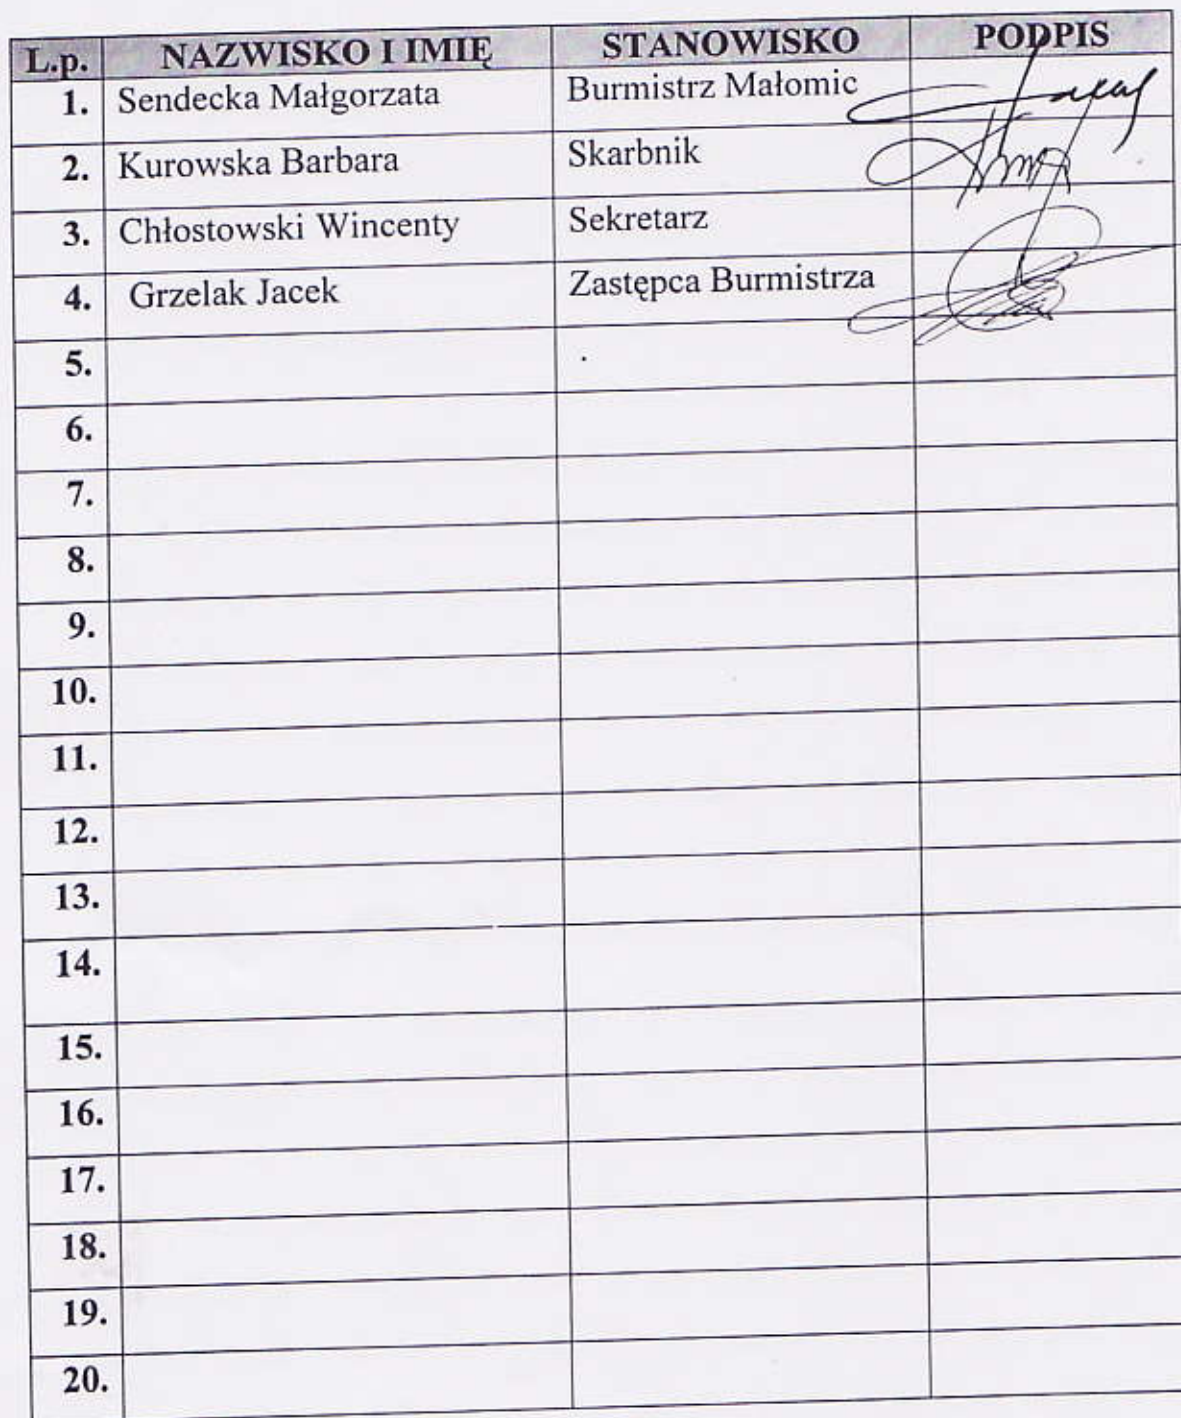 L.p. NAZWISKO I IMIĘ STANOWISKO PODPIS
1. Sendecka Małgorzata Burmistrz Małomic
2. Kurowska Barbara Skarbnik
3. Chłostowski Wincenty Sekretarz
4. Grzelak Jacek Zastępca Burmistrza
5.
6.
7.
8.
9.
10.
11.
12.
13.
14.
15.
16.
17.
18.
19.
20.